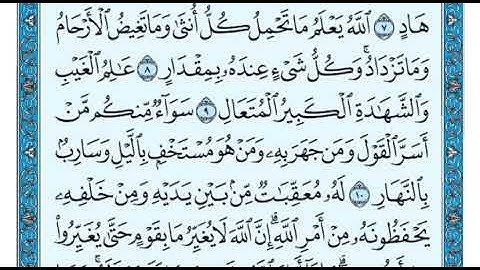 هَادٍ ٧ ٱللَّهُ يَعۡلَمُ مَا تَحۡمِلُ كُلُّ أُنثَىٰ وَمَا تَغِيضُ ٱلۡأَرۡحَامُ
وَمَا تَزۡدَادُۚ وَكُلُّ شَيۡءٍ عِندَهُۥ بِمِقۡدَارٍ ٨ عَٰلِمُ ٱلۡغَيۡبِ
وَٱلشَّهَٰدَةِ ٱلۡكَبِيرُ ٱلۡمُتَعَالِ ٩ سَوَآءٞ مِّنكُم مَّنۡ
أَسَرَّ ٱلۡقَوۡلَ وَمَن جَهَرَ بِهِۦ وَمَنۡ هُوَ مُسۡتَخۡفِۭ بِٱلَّيۡلِ وَسَارِبُۢ
بِٱلنَّهَارِ ١٠ لَهُۥ مُعَقِّبَٰتٞ مِّنۢ بَيۡنِ يَدَيۡهِ وَمِنۡ خَلۡفِهِۦ
يَحۡفَظُونَهُۥ مِنۡ أَمۡرِ ٱللَّهِۗ إِنَّ ٱللَّهَ لَا يُغَيِّرُ مَا بِقَوۡمٍ حَتَّىٰ يُغَيِّرُواْ